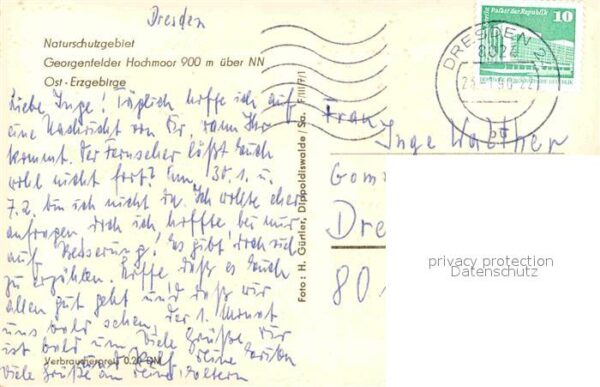 Dresden
Naturschutzgebiet
Georgenfelder Hochmoor 900 m über NN
Ost-Erzgebirge
Liebe Inge! Täglich hoffe ich auf
eine Nachricht von Dir, wann Ihr
kommt. Der Fernseher läßt Euch
wohl nicht fort? Am 30.1. u.
7.2. bin ich nicht da. Ich wollte eher
anfragen doch ich hoffte bei mir
auf Besserung! Es gibt doch viel
zu erzählen. Hoffe daß es Euch
allen gut geht und daß wir
uns bald sehen. Der 1. Monat
ist bald um. Viele Grüße
und Rolf deine
Viele Grüße an deine Eltern
Verbraucherpreis 0.20 DM
Foto: H. Gürtler, Dippoldiswalde/Sa. F/III/7/1
Palast der Republik
10
DRESDEN
8024
Frau
Inge Walther
Gom
Dre
80
privacy protection
Datenschutz